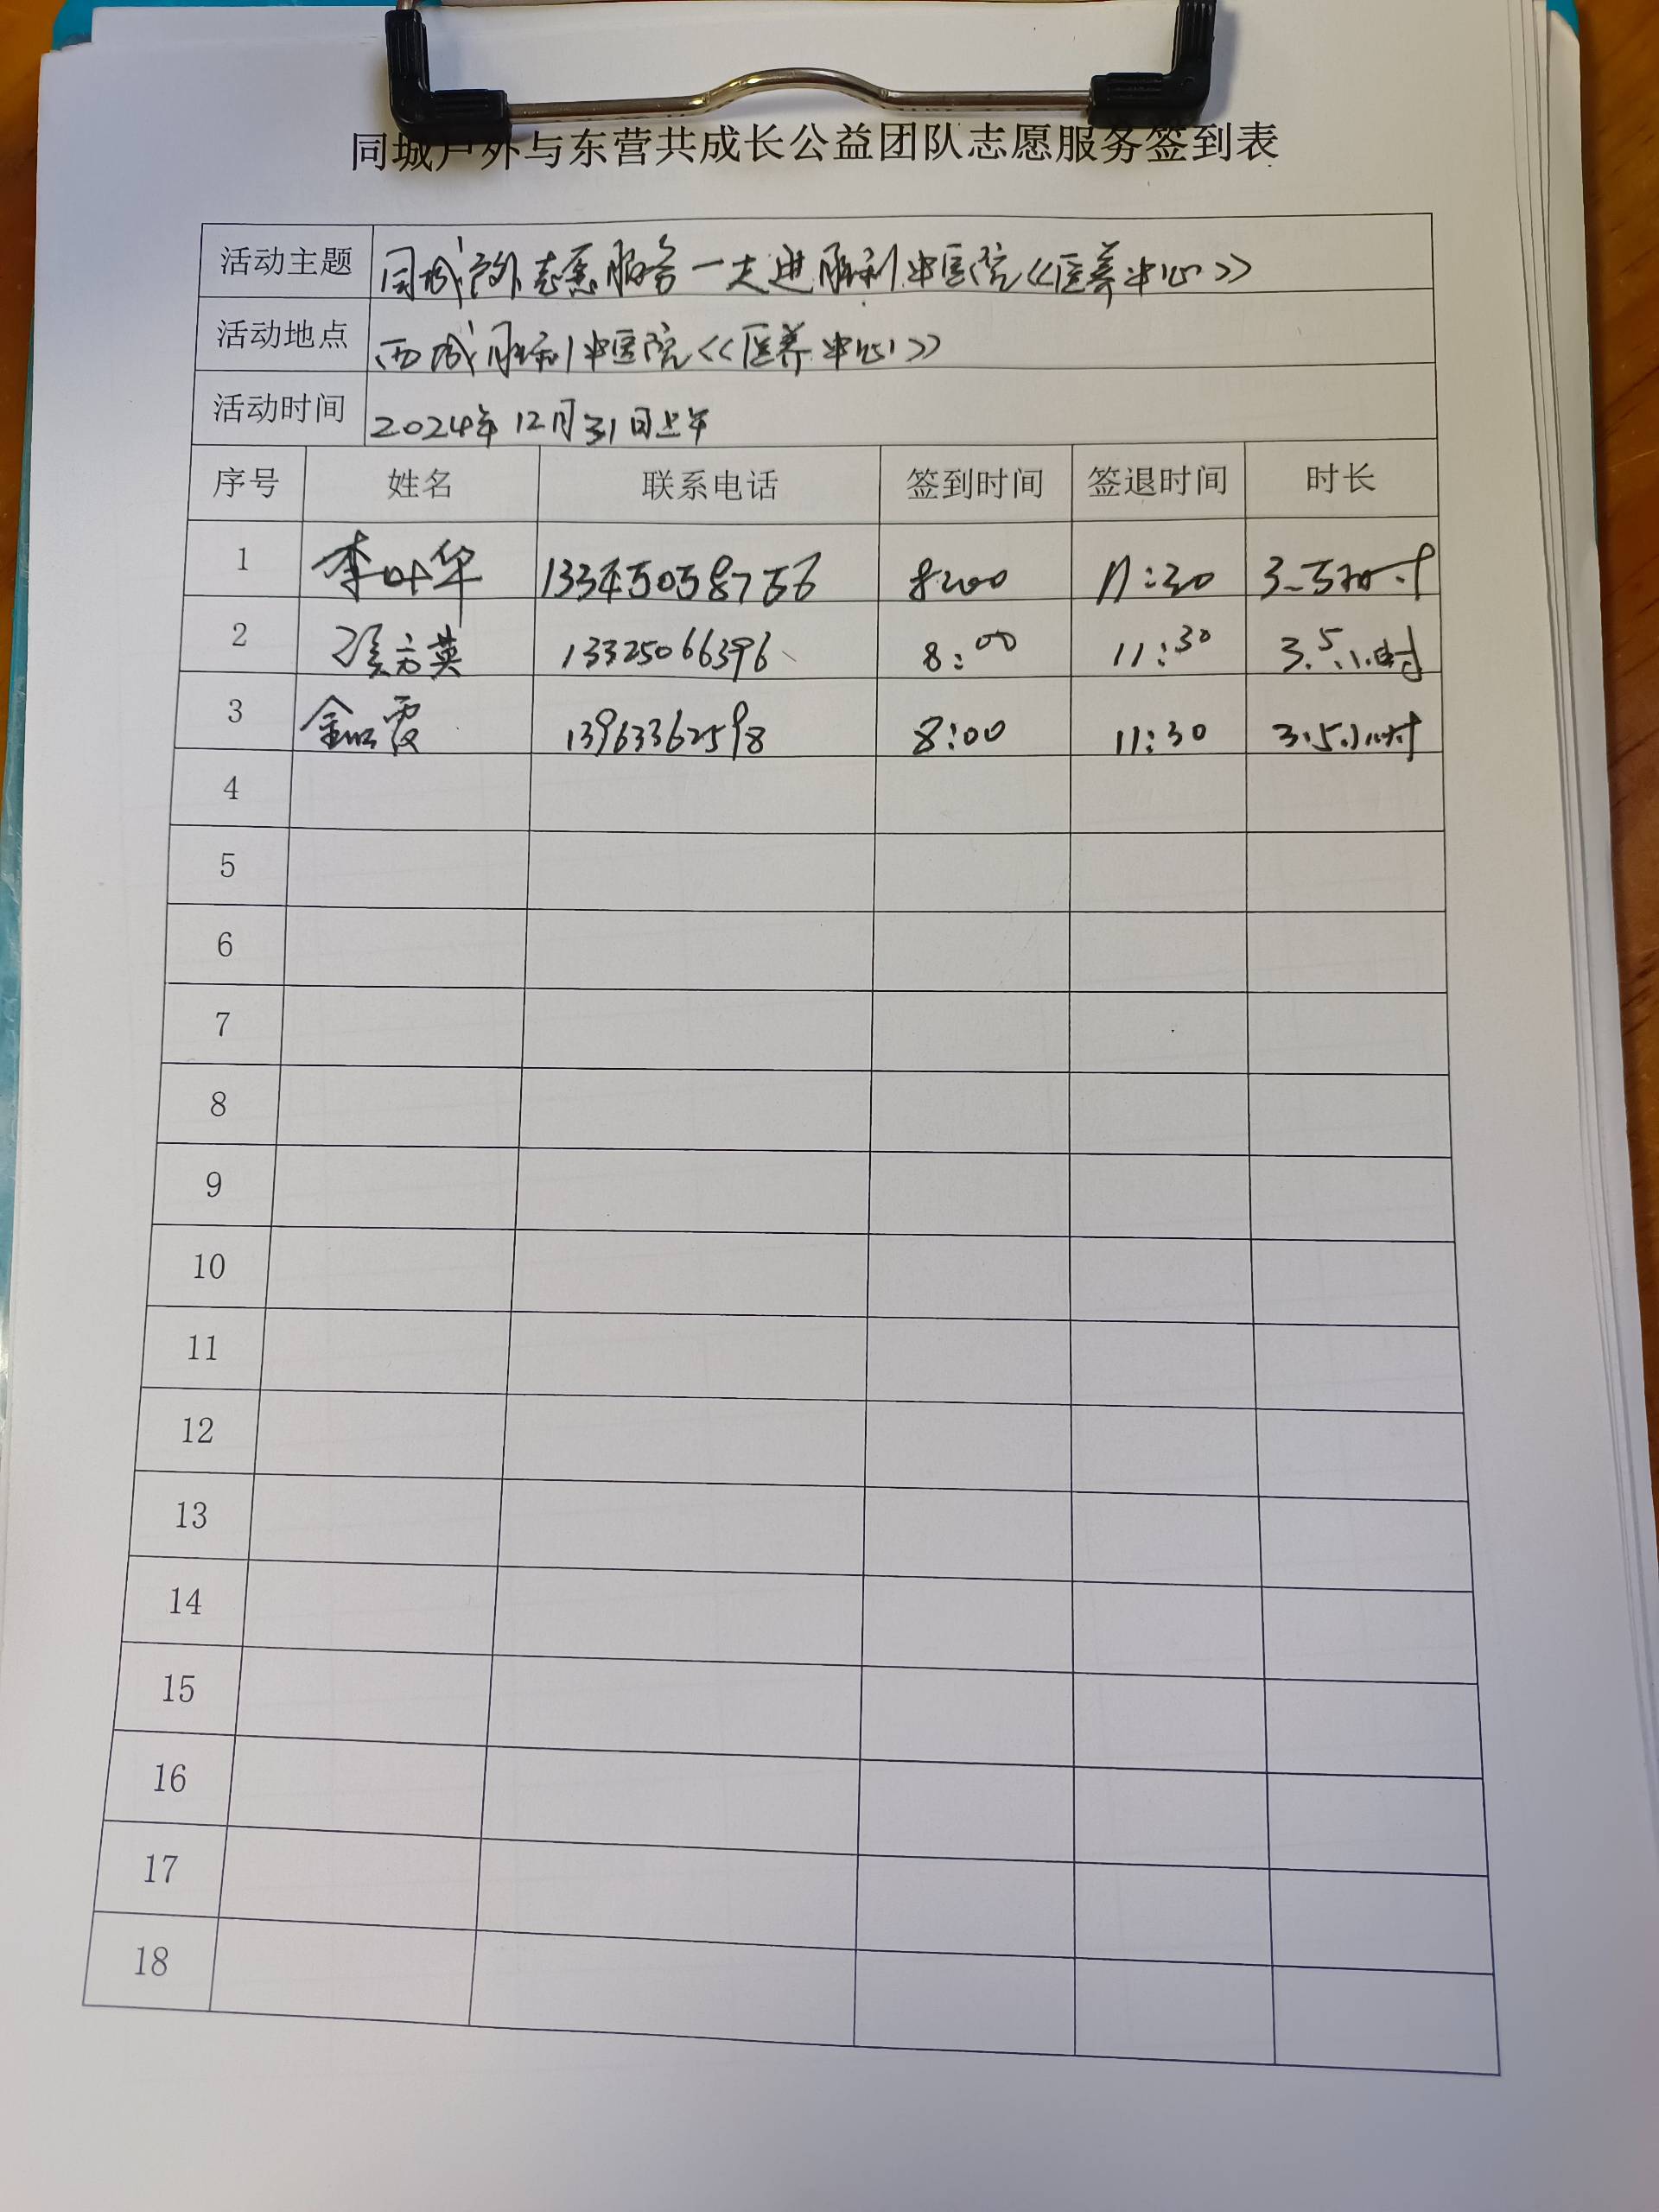 同城户外与东营共成长公益团队志愿服务签到表
活动主题 同城户外志愿服务一走进胜利中医院《医养中心》
活动地点 西城胜利中医院《医养中心》
活动时间 2024年12月31日上午
序号 姓名 联系电话 签到时间 签退时间 时长
1 李叶华 13345058756 8:00 11:30 3.5小时
2 张方英 13325066396 8:00 11:30 3.5小时
3 13963362598 8:00 11:30 3.5小时
4
5
6
7
8
9
10
11
12
13
14
15
16
17
18